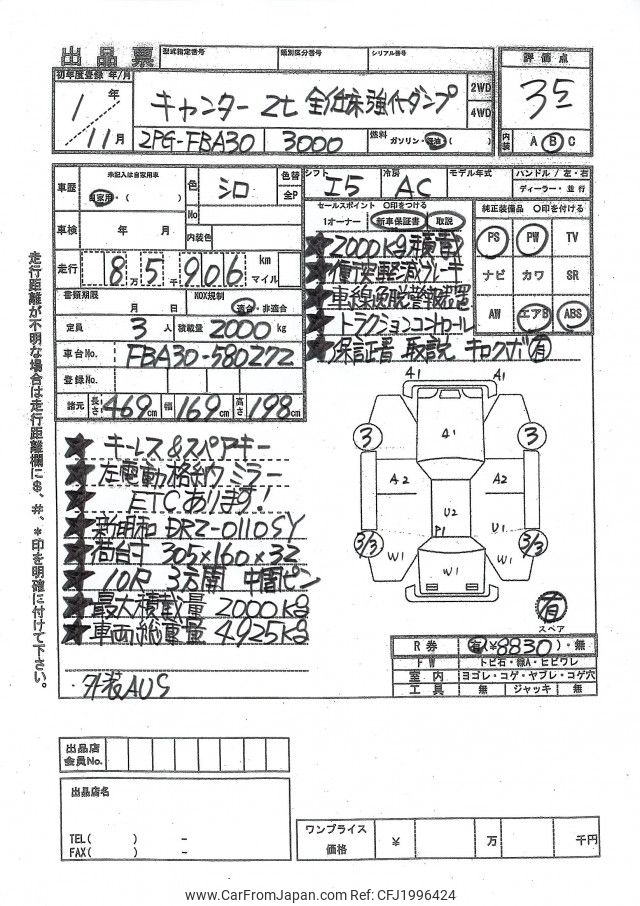 出品票
型式指定番号
類別区分番号
シリアル番号
評価点
3.5
内装
A B C
初年度登録 年/月
1年
11月
キャンター 2t 全低床強化ダンプ
2WD
4WD
2PG-FBA30
3000
燃料
ガソリン・軽油・( )
車歴
未記入は自家用車
自家用・( )
色
シロ
No
色替
全P
車検
年 月
内装色
走行
8万5千906
km
マイル
書類期限
月 日
NOX規制
適合・非適合
定員
3人
積載量
2000kg
車台No.
FBA30-580272
登録No.
諸元
長さ 469cm
幅 169cm
高さ 198cm
シフト
I5
冷房
AC
モデル年式
ハンドル/左・右
ディーラー・並行
セールスポイント ○印をつける
1オーナー
新車保証書
取説
★2000kg積載
★衝突軽減ブレーキ
★車線逸脱警報装置
★トラクションコントロール
★保証書 取説 キロクボ有
純正装備品 ○印を付ける
PS PW TV
ナビ カワ SR
AW エアB ABS
走行距離が不明な場合は走行距離欄に$、#、*印を明確に付けて下さい。
★キーレス&スペアキー
★左電動格納ミラー
★ETCあります!
★新明和 DRZ-0110SY
★荷台寸 305×160×32
★10尺 3方開 中間ピン
★最大積載量 2000kg
★車両総重量 4925kg
外装AUS
A1
A1
3
3
A1
A2
A2
U2
P1
U1
3/3
3/3
W1
W1
W1
A1
有
スペア
R券
有(¥8830)・無
FW
トビ石・線A・ヒビワレ
室内
ヨゴレ・コゲ・ヤブレ・コゲ穴
工具
無
ジャッキ
無
出品店
会員No.
出品店名
TEL( ) -
FAX( ) -
ワンプライス
価格
¥
万
千円
www.CarFromJapan.com Ref: CFJ1996424